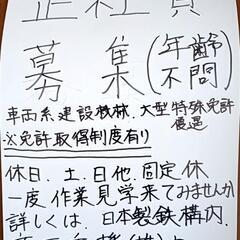 正社員
募集(年齢不問)
車両系建設機械.大型特殊免許優遇
※免許取得制度有り
休日.土.日他.固定休
一度作業見学来てみませんか
詳しくは.日本製鉄構内